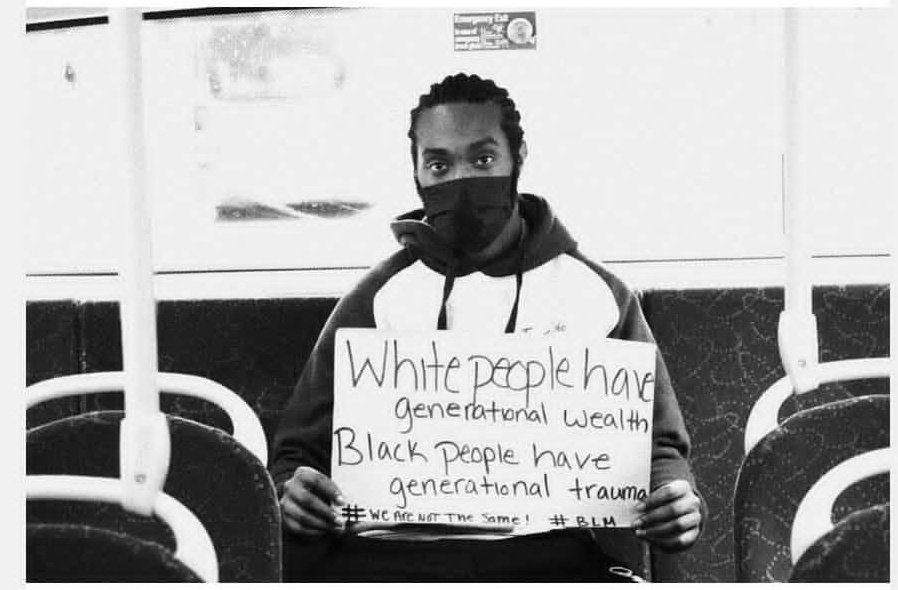 Emergency Exit
White people have
generational wealth
Black people have
generational trauma
#WE ARE NOT THE Same! #BLM